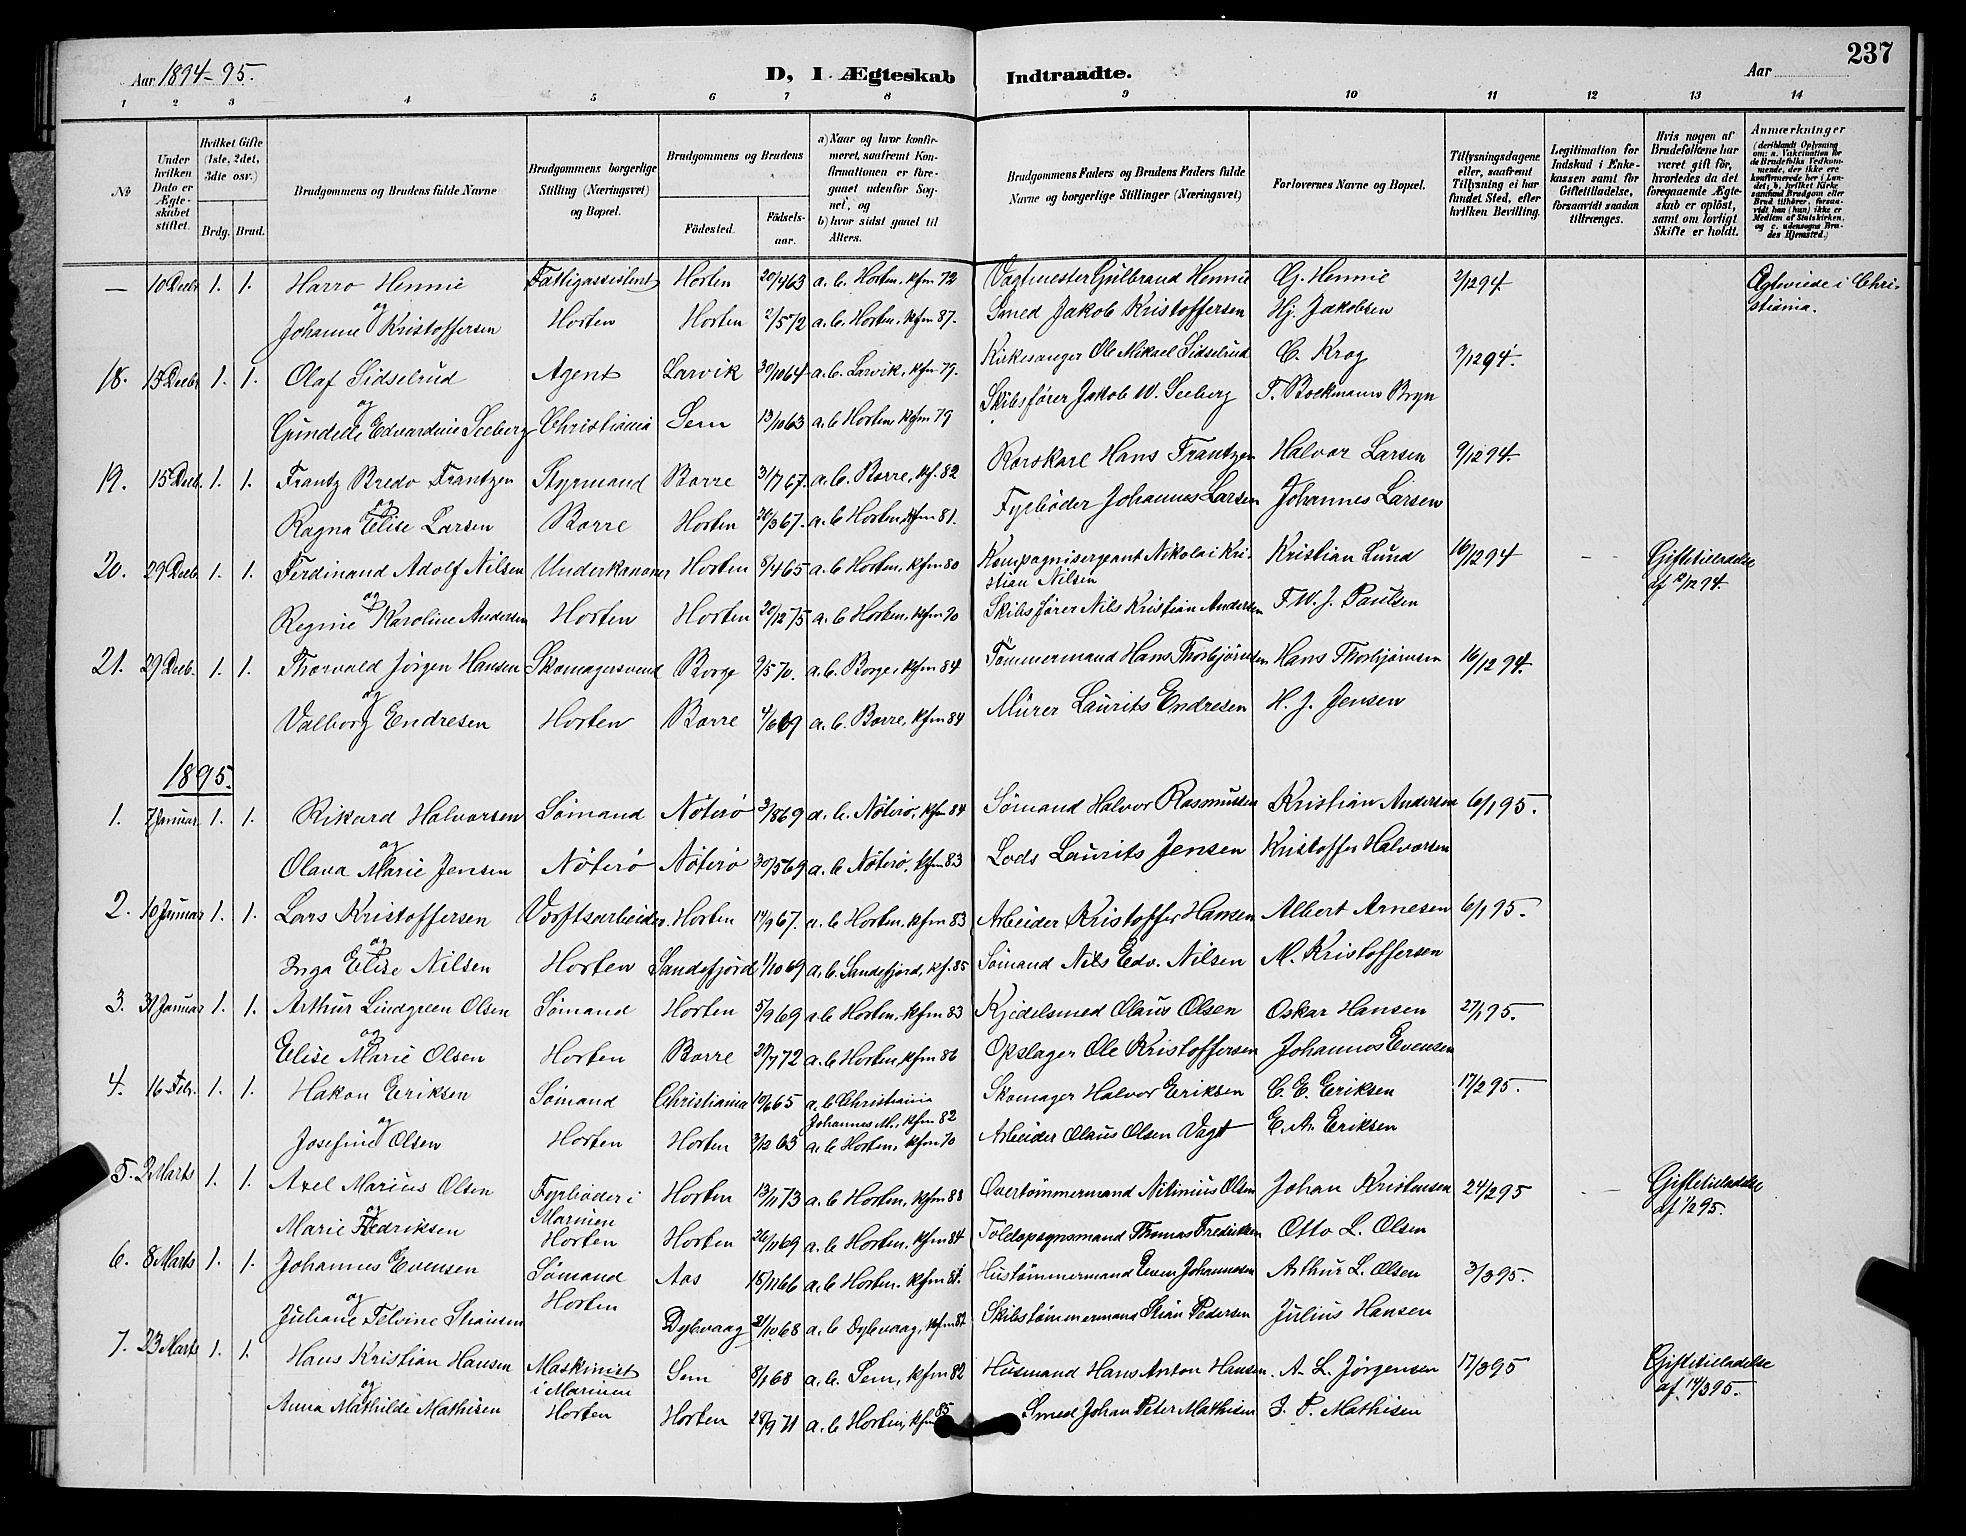 Aar 1894-95.
D, I Ægteskab Indtraadte.
Aar
237
1 2 3 4 5 6 7 8 9 10 11 12 13 14
No
Under hvilken Dato er Ægteskabet stiftet.
Hvilket Gifte (1ste, 2det, 3die osv.)
Brdg. Brud.
Brudgommens og Brudens fulde Navne
Brudgommens borgerlige Stilling (Næringsvei) og Bopæl.
Brudgommens og Brudens
Fødested.
Fødsels-aar.
a) Naar og hvor konfirmeret, saafremt Konfirmationen er foregaaet udenfor Sognet, og b) hvor sidst gaaet til Alters.
Brudgommens Faders og Brudens Faders fulde Navne og borgerlige Stillinger (Næringsvei)
Forlovernes Navne og Bopæl.
Tillysningsdagene eller, saafremt Tillysning ei har fundet Sted, efter hvilken Bevilling.
Legitimation for Indskud i Enkekassen samt for Giftetilladelse, forsaavidt saadan tiltrænges.
Hvis nogen af Brudefolkene har været gift før, hvorledes da det foregaaende Ægteskab er opløst, samt om lovligt Skifte er holdt.
Anmærkninger (deriblandt Oplysning om: a. Vakcination for de Brudefolks Vedkommende, der ikke ere konfirmerede her i Landet; b. hvilket Kirkesamfund Brudgom eller Brud tilhører, forsaavidt han (hun) ikke er Medlem af Statskirken, og c. udensogns Brudes Hjemsted.)
— 10 Decbr 1. 1. Harro Hennie Fattigassistent Horten 20/4 63 a. b. Horten, kfm 72 Vagtmester Gulbrand Hennie G. Hennie 2/12 94. Ægteviede i Christiania.
og
Johanne Kristoffersen Horten Horten 2/5 72 a. b. Horten, kfm 87. Smed Jakob Kristoffersen Hj. Jakobsen
18. 13 Decbr 1. 1. Olaf Sidselrud Agent Larvik 30/10 64 a. b. Larvik, kfm 79. Kirkesanger Ole Mikael Sidselrud C. Krog 9/12 94.
og
Gundelle Edvardine Seeberg Christiania Sem 13/10 63 a. b. Horten kfm 79 Skibsfører Jakob W. Seeberg F. Bockmann Bryn
19. 15 Decb. 1. 1. Frantz Bredo Frantzen Styrmand Borre 3/7 67. a. b. Borre, kf. 82 Rorskarl Hans Frantzen Halvor Larsen 9/12 94.
og
Ragna Elise Larsen Borre Horten 20/3 67. a. b Horten, kfm 81. Fyrbøder Johannes Larsen Johannes Larsen
20. 29 Decb 1. 1. Ferdinand Adolf Nilsen Underkanoner Horten 8/4 65 a. b. Horten, kfm 80 Kompagnisergeant Nikolai Kristian Nilsen Kristian Lund 16/12 94 — Giftetilladelse af 12/12 94.
og
Regine Karoline Andersen Horten Horten 20/12 75 a. b Horten, kfm 90 Skibsfører Nils Kristian Andersen F. W. J. Paulsen
21. 29 Decb. 1. 1. Thorvald Jörgen Hansen Skomagersvend Borge 9/5 70. a. b. Borge, kfm 84 Tömmermand Hans Thorbjörnsen Hans Thorbjørnsen 16/12 94.
og
Valborg Endresen Horten Borre 4/6 69 a. b. Borre, kfm 84 Murer Laurits Endresen H. J. Jensen
1895.
1. 7 Januar 1. 1. Rikard Halvorsen Sømand Nøterø 3/8 69 a. b. Nøterø, kfm 84 Sømand Halvor Rasmussen Kristian Andersen 6/1 95.
og
Olava Marie Jensen Nøterø Nøterø 30/5 69 a. b Nøterø, kfm 83 Lods Laurits Jensen Kristoffer Halvorsen
2. 10 Januar 1. 1. Lars Kristoffersen Verftsarbeider. Horten 14/9 67. a. b Horten, kfm 83 Arbeider Kristoffer Hansen Albert Arnesen 6/1 95.
og
Inga Elise Nilsen Horten Sandefjord 1/10 69 a. b. Sandefjord, kf. 85 Sømand Nils Edv. Nilsen M. Kristoffersen
3. 31 Januar 1. 1. Arthur Lindgreen Olsen Sømand Horten 5/9 69 a. b Horten, kfm 83 Kjedelsmed Olaus Olsen Oskar Hansen 27/1 95.
og
Elise Marie Olsen Horten Borre 27/7 72 a. b Horten, kfm 86 Opslager Ole Kristoffersen Johannes Evensen
4. 16 Febr. 1. 1. Hakon Eriksen Sømand Christiania 10/6 65 a. b Christiania Johannes M., kfm 82 Skomager Halvor Eriksen C. E. Eriksen 17/2 95.
og
Josefine Olsen Horten Horten 3/12 63 a. b Horten, kfm 70 Arbeider Olaus Olsen Vagt E. A. Eriksen
5. 2 Marts 1. 1. Axel Marius Olsen Fyrbøder i Marinen Horten Horten 13/11 73 a. b Horten, kfm 88 Overtømmermand Nitinius Olsen Johan Kristensen 24/2 95 — Giftetilladelse af 1/2 95.
og
Marie Fredriksen Horten 26/11 69 a. b Horten, kfm 84 Toldopsynsmand Thomas Fredriksen Otto L. Olsen
6. 8 Marts 1. 1. Johannes Evensen Sømand Horten Aas 18/11 66 a. b Horten, kfm 81. Hustømmermand Even Johannesen Arthur L. Olsen 3/3 95.
og
Juliane Telvine Stiansen Dybvaag 21/10 68 a. b Dybvaag, kfm 84 Skibstømmermand Stian Pedersen Julius Hansen
7. 23 Marts 1. 1. Hans Kristian Hansen Maskinist i Marinen Horten Sem 8/1 68 a. b. Sem, kfm 82 Husmand Hans Anton Hansen. A. L. Jørgensen 17/3 95 Giftetilladelse af 14/3 95.
og
Anna Mathilde Mathisen Horten 28/9 71 a. b Horten, kfm 85 Smed Johan Peter Mathisen J. P. Mathisen